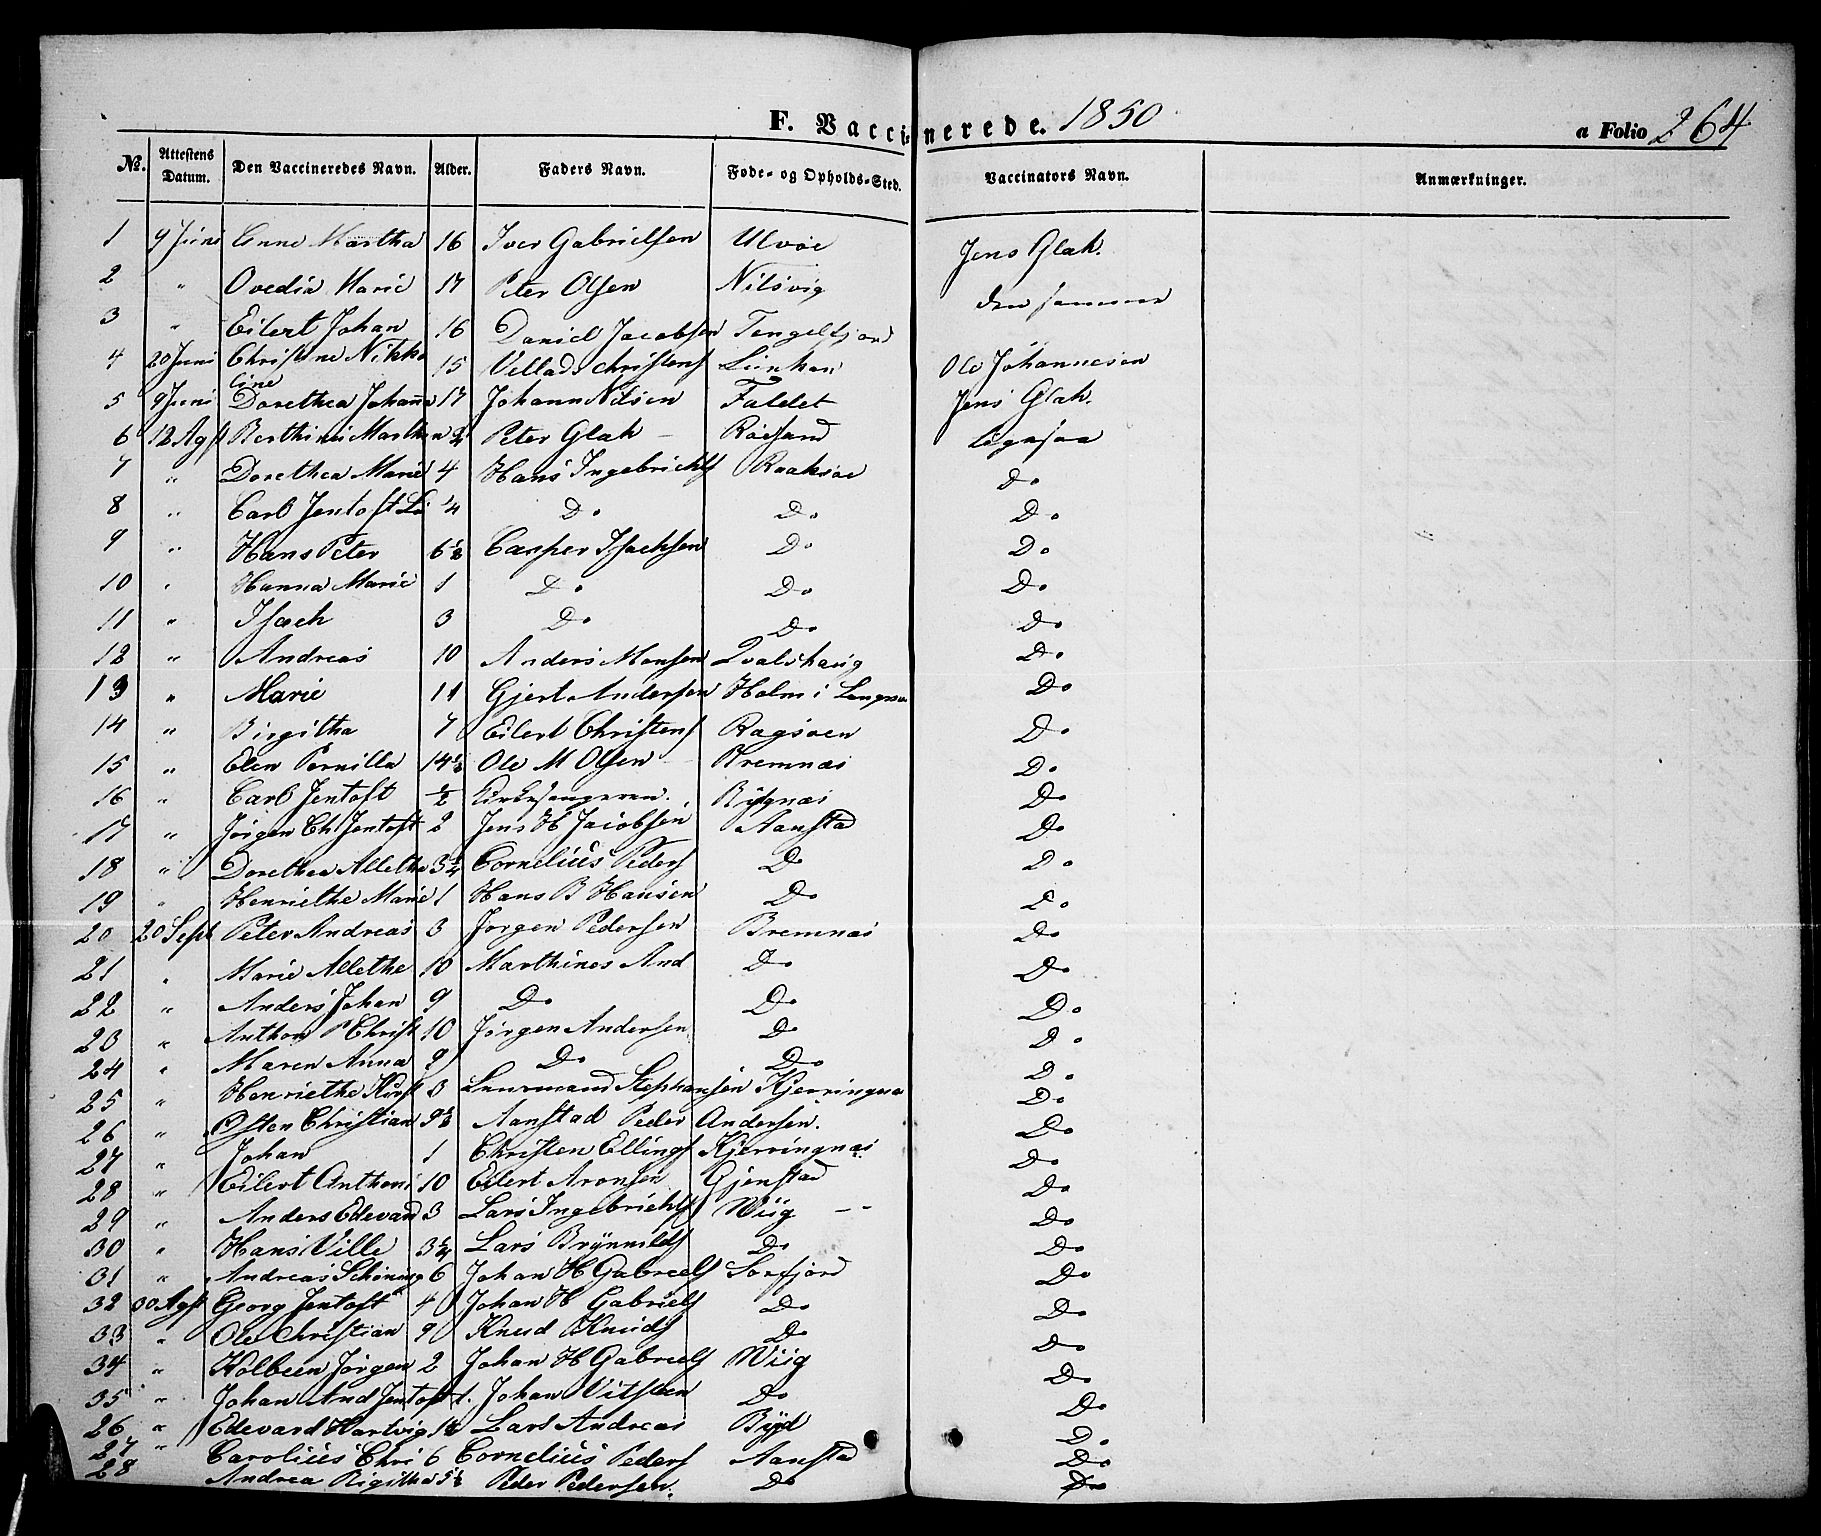 F. Vaccinerede. 1850
a Folio 264
No. Attestens Datum. Den Vaccineredes Navn. Alder. Faders Navn. Føde- og Opholds-Sted. Vaccinators Navn. Anmærkninger.
1 9 Juni Anne Martha 16 Iver Gabrielsen Ulvøe Jens Glak.
2 " Ovedia Marie 17 Peter Olsen Nilsvig den samme
3 " Eilert Johan 16 Daniel Jacobsen Tengelfjord
4 20 Juni Christine Nikko 15 Vellads Christens Ole Johannesen
line
5 9 Juni Dorethea Johanna 17 Johann Nilsen Faldet Jens Glak.
6 12 Agst Marthea Peter Glak Røesand
7 " Dorethea Marie 4 Hans Ingebrichts Raaksøe Do
8 " Carl Jentoft 1/4 Do Do Do
9 " Hans Peter 6 1/2 Casper Isachsen Do Do
10 " Hanna Marie 1 Do Do Do
11 " Isach 3 Do Do Do
12 " Andreas 10 Anders Monsen Qvalshaug Do
13 " Marie 11 Gjert Andersen Holm i Do
14 " Birgitha 7 Eilert Christens Ragsøen Do
15 " Elen Pernilla 14 1/2 Ole M Olsen Bremnæs Do
16 " Carl Jentoft 1/2 Kirkesangeren. Do
17 " Jørgen Ch Jentoft 2 Jens H Jacobsen Aanstad Do
18 " Dorethea Allethe 3 1/4 Cornelius Peders Do Do
19 " Henriethe Marie 1 Hans B Hansen Do Do
20 20 Sept Peter Andreas 3 Jørgen Pedersen Bremnæs Do
21 " Marie Allethe 10 Marthines And Do Do
22 " Anders Johan 9 Do Do Do
23 " Anthon P Christ 10 Jørgen Andersen Do Do
24 " Maren Anna 9 Do Do Do
25 " Henriethe 3 Laurmand Stephansen Kjerringnæs Do
26 " Osten Christian 9 1/2 Aanstad Peder Andersen. Do
27 " Johan 1 Christen Ellings Kjerringnæs Do
28 " Eilert Anthoni 10 Eilert Aronsen Gjenstad Do
29 " Anders Edevard 3 Lars Ingebrichts Wiig Do
30 " Hans Ville 3 1/4 Lars Brynnilds Do Do
31 " Andreas Schøning 6 Johan H Gabriels Sørfjord Do
32 30 Agst Georg Jentoft 4 Johan H Gabriels Do Do
33 " Ole Christian 9 Knud Knuds Do Do
34 " Holbeen Jørgen 2 Johan H Gabriels Wiig Do
35 " Johan And Jentoft 1. Johan Do Do
26 " Edevard Hartvig 1 1/2 Lars Andreas Do
27 " Carolius Chri 6 Cornelius Peders Aansta Do
28 Andrea Rigitha 5 1/2 Peder Pedersen. Do Do